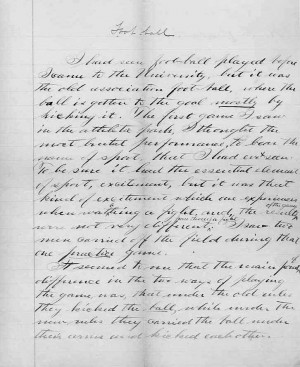 Foot ball
I had seen foot-ball played before
I came to the University, but it was
the old association foot ball, where the
ball is gotten to the goal mostly by
kicking it. The first game I saw
in the athletic park, I thought the
most brutal performance, to bear the
name of sport, that I had ever saw.
To be sure it had the essential element
of sport, excitement, but it was that
kind of excitement which one experiences
when watching a fight, only the results
of the game
were not very different. I saw two
men carried off the field during that
one practice game.
It seemed to me that the main
difference in the two ways of playing
the game was, that under the old rules
they kicked the ball, while under the
new rules they carried the ball under
their arms and kicked each other.